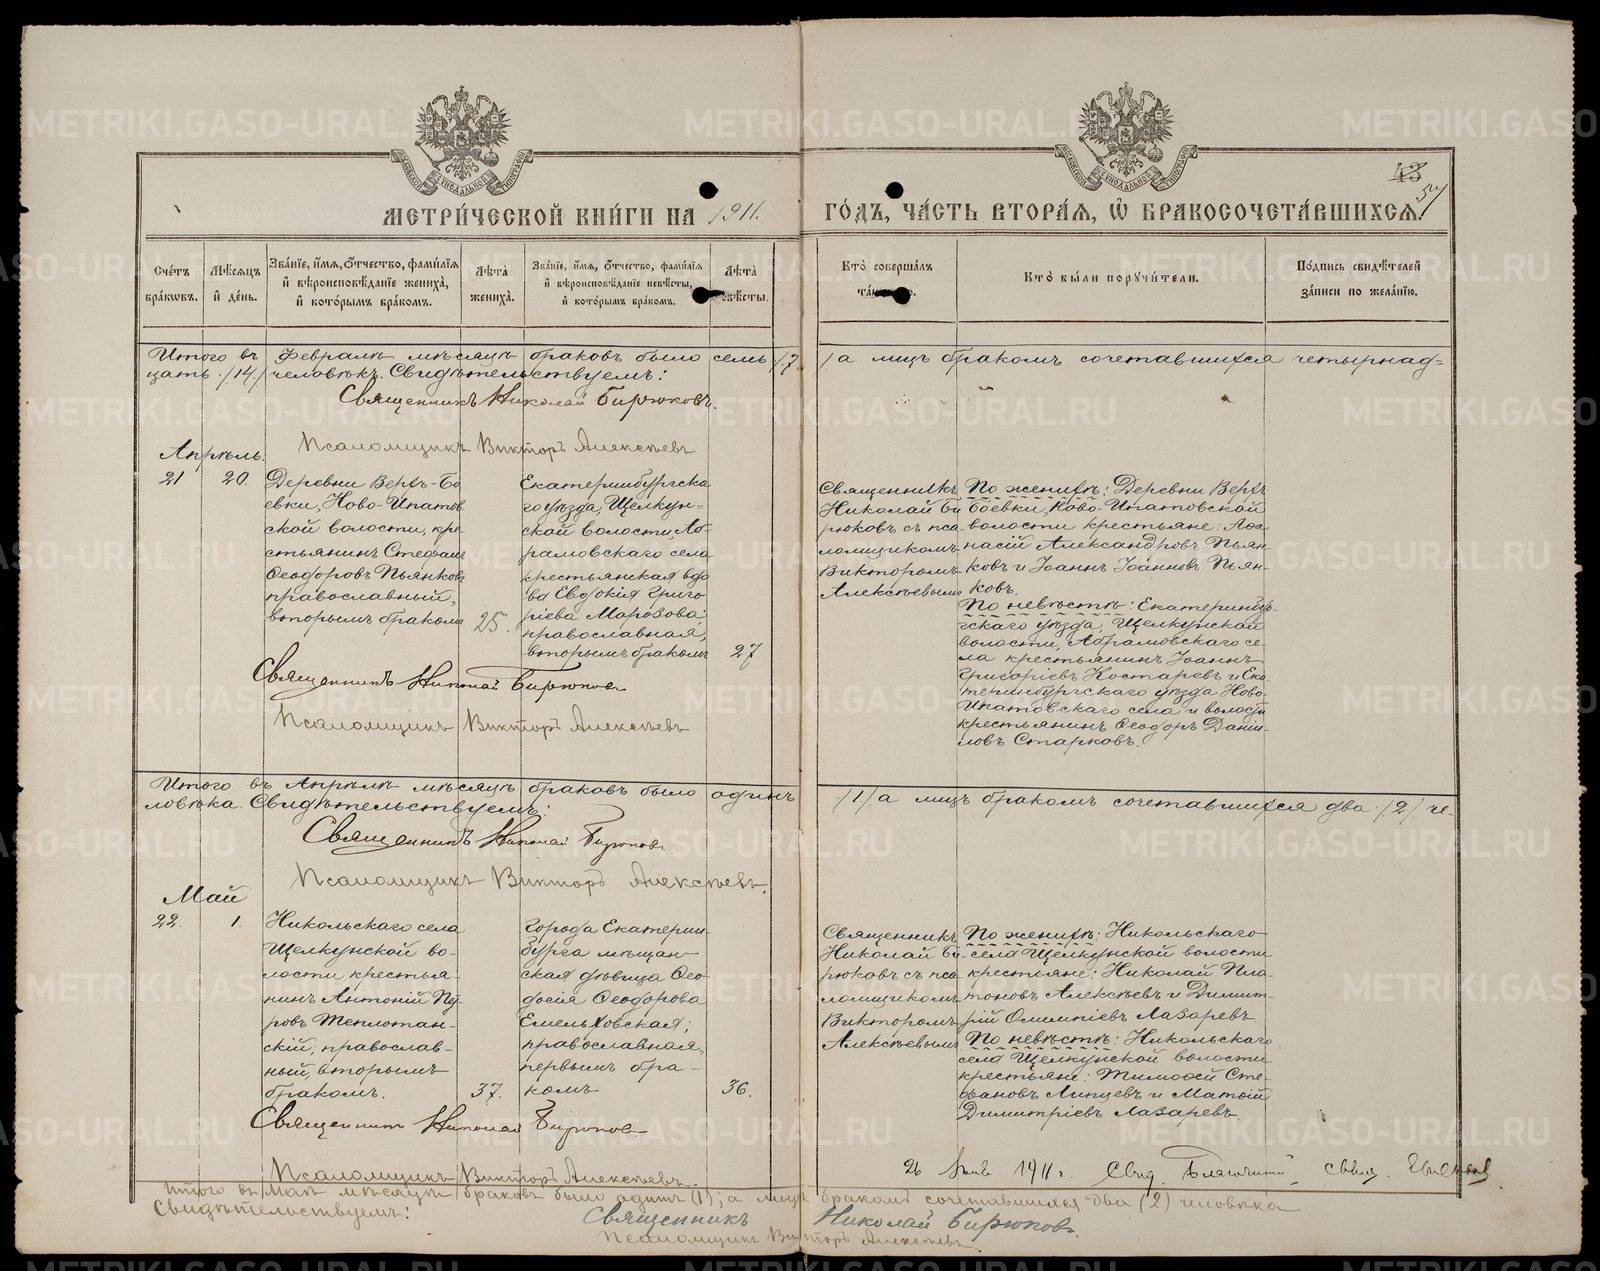 МЕТРИ́ЧЕСКОЙ КНИ́ГИ НА 1911. ГО́ДЪ, ЧА́СТЬ ВТОРА́Я, Ѽ БРАКОСОЧЕТА́ВШИХСЯ.
43
57
Сче́тъ бра́кѡвъ.
Мѣ́сяцъ и҆ де́нь.
Зва́нїе, и҆́мя, ѻ҆́тчество, фами́лїя и҆ вѣроисповѣ́данїе жениха̀, и҆ кото́рымъ бра́комъ.
Лѣ́та жениха̀.
Зва́нїе, и҆́мя, ѻ҆́тчество, фами́лїя и҆ вѣроисповѣ́данїе невѣ́сты, и҆ кото́рымъ бра́комъ.
Лѣ́та
Кто̀ соверша́лъ
Кто̀ бы́ли порꙋчи́тели.
По́дпись свидѣ́телей за́писи по жела́нїю.
Итого въ Февралѣ мѣсяцѣ браковъ было семь /7/ а лицъ бракомъ сочетавшихся четырнад=
цать /14/ человѣкъ. Свидѣтельствуемъ:
Священникъ Николай Бирюковъ.
Псаломщикъ Викторъ Алексѣевъ
Апрѣль.
21
20.
Деревни Верхъ-Бо
евки, Ново-Ипатов
ской волости, кре
стьянинъ Стефанъ
Ѳеодоровъ Пьянковъ
православный,
вторымъ бракомъ
25.
Екатеринбургска
го уѣзда, Щелкун=
ской волости, Аб
рамовскаго села
крестьянская вдо
ва Евдокія Григо
ріева Морозова;
православная,
вторымъ бракомъ
27.
Священникъ
Николай Би
рюковъ съ пса
ломщикомъ
Викторомъ
Алексѣевымъ
По женихѣ: Деревни Верхъ
Боевки, Ново-Ипатовской
волости крестьяне: Аѳа
насій Александровъ Пьян
ковъ и Іоаннъ Іоанновъ Пьян-
ковъ.
По невѣстѣ: Екатеринбур-
гскаго уѣзда, Щелкунской
волости, Абрамовскаго се-
ла крестьянинъ Іоаннъ
Григоріевъ Костаревъ и Ека
теринбургскаго уѣзда Ново-
Ипатовскаго села и волости
крестьянинъ Ѳеодоръ Даніи-
ловъ Старковъ.
Священникъ Николай Бирюковъ
Псаломщикъ Викторъ Алексѣевъ
Итого въ Апрѣлѣ мѣсяцѣ браковъ было одинъ /1/ а лицъ бракомъ сочетавшихся два /2/ че-
ловѣка. Свидѣтельствуемъ:
Священникъ Николай Бирюковъ.
Псаломщикъ Викторъ Алексѣевъ.
Май
22.
1.
Никольскаго села
Щелкунской во-
лости крестья-
нинъ Антоній Пу
ровъ Теплотан-
скій; православ-
ный, вторымъ
бракомъ.
37.
города Екатерин-
бурга мѣщан-
ская дѣвица Ѳео
досія Ѳеодорова
Емельховская;
православная,
первымъ бра-
комъ
36.
Священникъ
Николай Би-
рюковъ съ пса
ломщикомъ
Викторомъ
Алексѣевымъ
По женихѣ: Никольскаго
села Щелкунской волости
крестьяне: Николай Пла-
тоновъ Алексѣевъ и Димит-
рій Олимпіевъ Лазаревъ
По невѣстѣ: Никольскаго
села Щелкунской волости
крестьяне: Тимоѳей Сте-
фановъ Липцевъ и Матѳій
Димитріевъ Лазаревъ.
Священникъ Николай Бирюковъ.
Псаломщикъ Викторъ Алексѣевъ.
26 1911 г.
Итого въ Маѣ мѣсяцѣ браковъ было одинъ (1); а лицъ бракомъ сочетавшихся два (2) человѣка
Свидѣтельствуемъ:
Священникъ Николай Бирюковъ.
Псаломщикъ Викторъ Алексѣевъ
METRIKI.GASO-URAL.RU